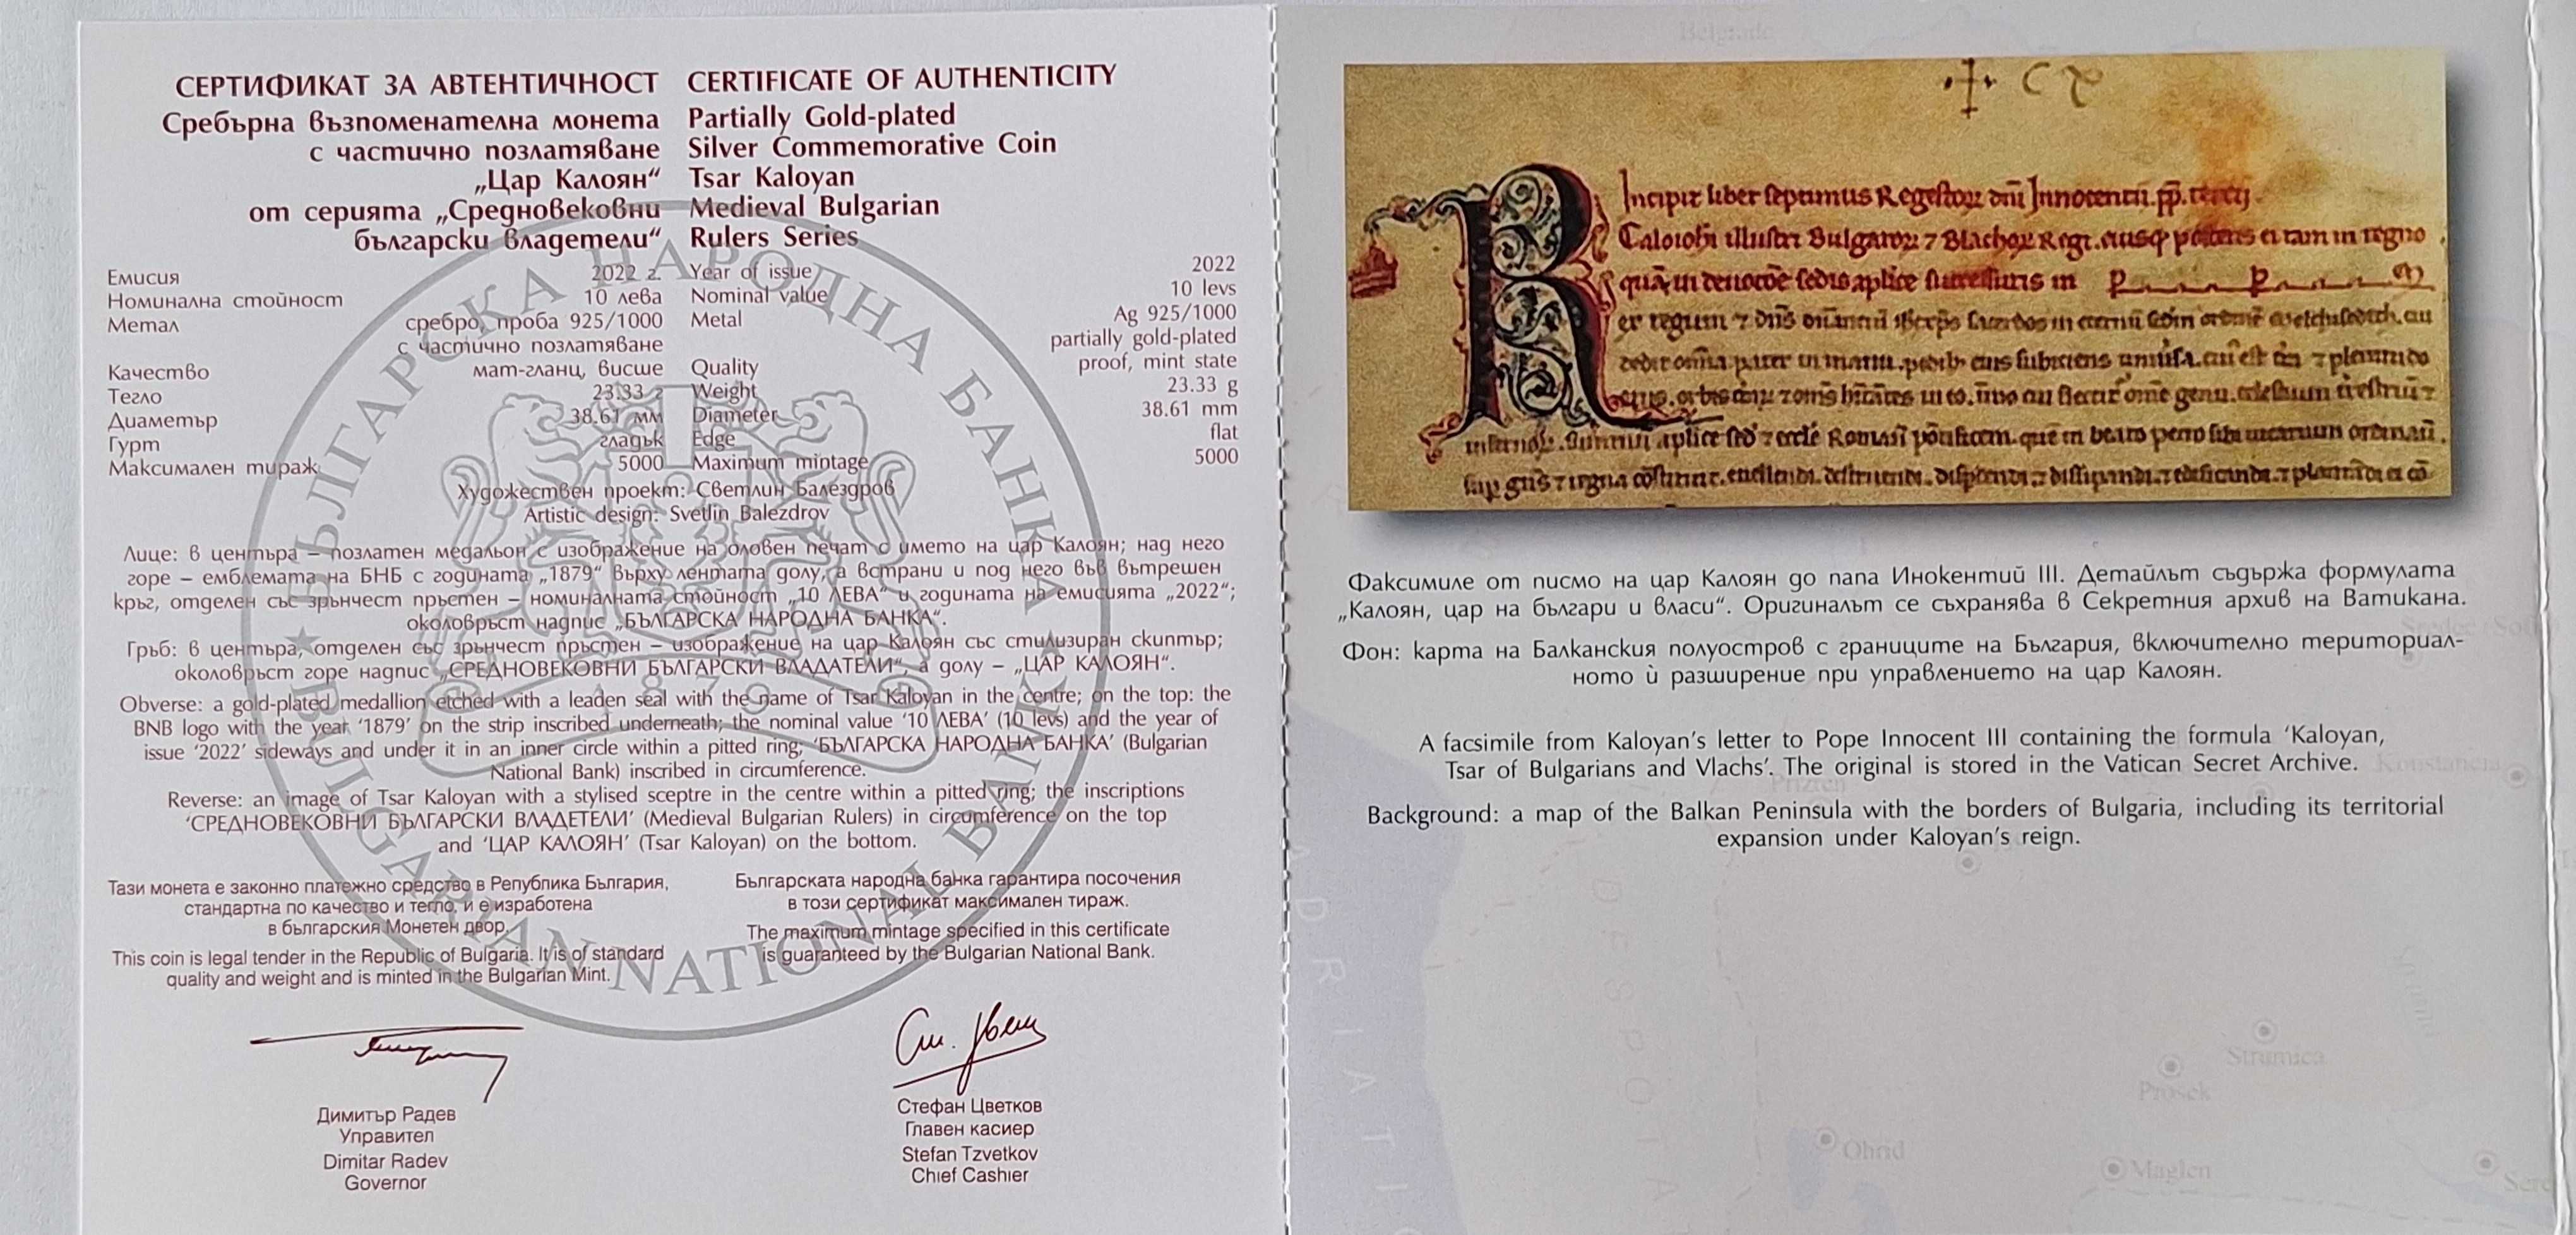 СЕРТИФИКАТ ЗА АВТЕНТИЧНОСТ
Сребърна възпоменателна монета
с частично позлатяване
„Цар Калоян“
от серията „Средновековни
български владетели“
CERTIFICATE OF AUTHENTICITY
Partially Gold-plated
Silver Commemorative Coin
Tsar Kaloyan
Medieval Bulgarian
Rulers Series
Емисия 2022 г.
Номинална стойност 10 лева
Метал сребро, проба 925/1000
с частично позлатяване
Качество мат-гланц, висше
Тегло 23.33 г
Диаметър 38.61 мм
Гурт гладък
Максимален тираж 5000
Year of issue 2022
Nominal value 10 levs
Metal Ag 925/1000
partially gold-plated
Quality proof, mint state
Weight 23.33 g
Diameter 38.61 mm
Edge flat
Maximum mintage 5000
Художествен проект: Светлин Балездров
Artistic design: Svetlin Balezdrov
Лице: в центъра – позлатен медальон с изображение на оловен печат с името на цар Калоян; над него
горе – емблемата на БНБ с годината „1879“ върху лентата долу, а встрани и под него във вътрешен
кръг, отделен със зрънчест пръстен – номиналната стойност „10 ЛЕВА“ и годината на емисията „2022“;
околовръст надпис „БЪЛГАРСКА НАРОДНА БАНКА“.
Гръб: в центъра, отделен със зрънчест пръстен – изображение на цар Калоян със стилизиран скиптър;
околовръст горе надпис „СРЕДНОВЕКОВНИ БЪЛГАРСКИ ВЛАДАТЕЛИ“, а долу – „ЦАР КАЛОЯН“.
Obverse: a gold-plated medallion etched with a leaden seal with the name of Tsar Kaloyan in the centre; on the top: the
BNB logo with the year ‘1879’ on the strip inscribed underneath; the nominal value ‘10 ЛЕВА’ (10 levs) and the year of
issue ‘2022’ sideways and under it in an inner circle within a pitted ring; ‘БЪЛГАРСКА НАРОДНА БАНКА’ (Bulgarian
National Bank) inscribed in circumference.
Reverse: an image of Tsar Kaloyan with a stylised sceptre in the centre within a pitted ring; the inscriptions
‘СРЕДНОВЕКОВНИ БЪЛГАРСКИ ВЛАДЕТЕЛИ’ (Medieval Bulgarian Rulers) in circumference on the top
and ‘ЦАР КАЛОЯН’ (Tsar Kaloyan) on the bottom.
Тази монета е законно платежно средство в Република България,
стандартна по качество и тегло, и е изработена
в българския Монетен двор.
This coin is legal tender in the Republic of Bulgaria. It is of standard
quality and weight and is minted in the Bulgarian Mint.
Българската народна банка гарантира посочения
в този сертификат максимален тираж.
The maximum mintage specified in this certificate
is guaranteed by the Bulgarian National Bank.
Димитър Радев
Управител
Dimitar Radev
Governor
Стефан Цветков
Главен касиер
Stefan Tzvetkov
Chief Cashier
БЪЛГАРСКА НАРОДНА БАНКА
BULGARIAN NATIONAL BANK
1879
Incipit liber septimus
Факсимиле от писмо на цар Калоян до папа Инокентий III. Детайлът съдържа формулата
„Калоян, цар на българи и власи“. Оригиналът се съхранява в Секретния архив на Ватикана.
Фон: карта на Балканския полуостров с границите на България, включително териториал-
ното ѝ разширение при управлението на цар Калоян.
A facsimile from Kaloyan’s letter to Pope Innocent III containing the formula ‘Kaloyan,
Tsar of Bulgarians and Vlachs’. The original is stored in the Vatican Secret Archive.
Background: a map of the Balkan Peninsula with the borders of Bulgaria, including its territorial
expansion under Kaloyan’s reign.
Belgrade
Prizren
Strumica
Prosek
Ohrid
Maglen
ADRIATIC